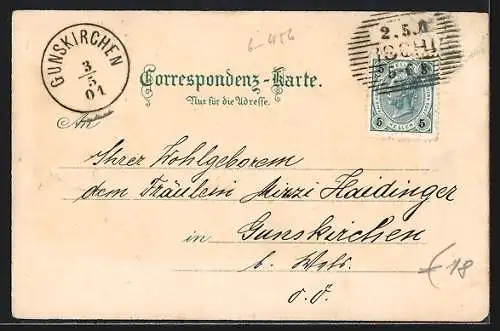 GUNSKIRCHEN
3/5
01
6-456
2.5.0
ISCHL
5-6S
5 5
Correspondenz-Karte.
Nur für die Adresse.
An
Ihrer Hohlgeborem
dem Fräulein Mizzi Haidinger
in Gunskirchen
b. Wels.
o. ö.
€ 18